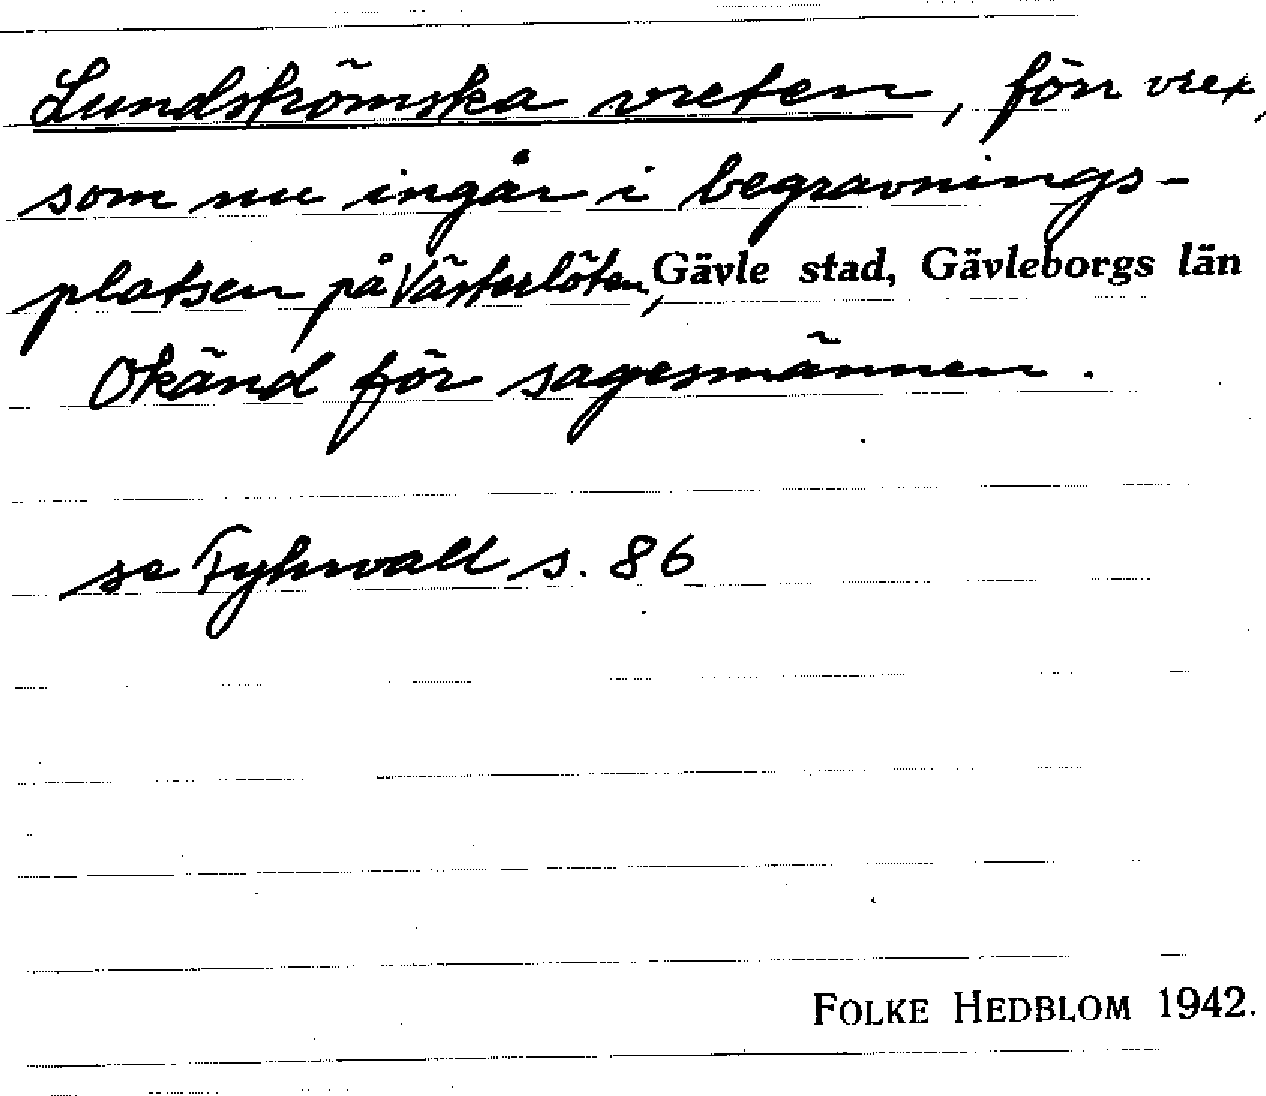 Lundströmska vreten, förr vret,
som nu ingår i begravnings-
platsen på Västerlöten, Gävle stad, Gävleborgs län
Okänd för sagesmännen.
se Fyhrvall s. 86
FOLKE HEDBLOM 1942.